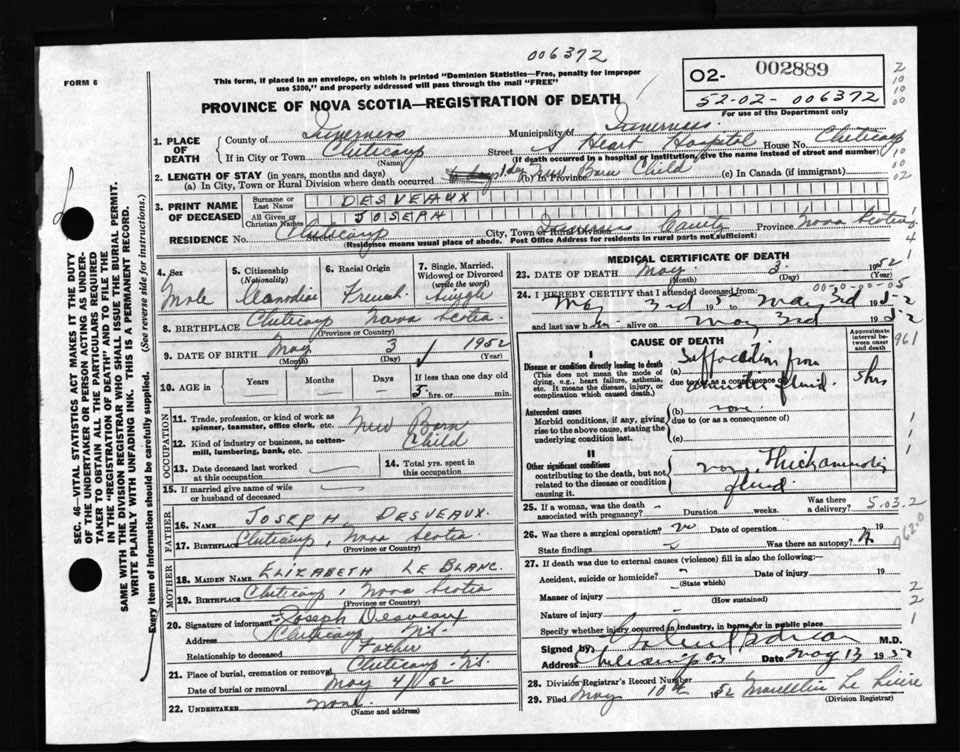 006372
FORM 6
This form, if placed in an envelope, on which is printed "Dominion Statistics—Free, penalty for improper
use $300," and properly addressed will pass through the mail "FREE"
02- 002889
52-02-006372
For use of the Department only
PROVINCE OF NOVA SCOTIA—REGISTRATION OF DEATH
1. PLACE OF DEATH
County of Inverness Municipality of Inverness
If in City or Town Cheticamp Street S Heart Hospital House No. Cheticamp
(Name) (If death occurred in a hospital or institution, give the name instead of street and number)
2. LENGTH OF STAY (in years, months and days)
(a) In City, Town or Rural Division where death occurred 1 day (b) in Province New Born Child (c) In Canada (if immigrant)
3. PRINT NAME OF DECEASED
Surname or Last Name DESVEAUX
All Given or Christian Names JOSEPH
RESIDENCE No. Street Cheticamp City, Town or Inverness County Province Nova Scotia
(Residence means usual place of abode. Post Office Address for residents in rural parts not sufficient)
4. Sex
Male
5. Citizenship
(Nationality)
Canadian
6. Racial Origin
French
7. Single, Married, Widowed or Divorced
(write the word)
Single
8. BIRTHPLACE Cheticamp Nova Scotia
(Province or Country)
9. DATE OF BIRTH May 3 1952
(Month) (Day) (Year)
10. AGE in Years Months Days If less than one day old
5 hrs. or min.
OCCUPATION
11. Trade, profession, or kind of work as
spinner, teamster, office clerk, etc. New Born
12. Kind of industry or business, as cotton-
mill, lumbering, bank, etc. Child
13. Date deceased last worked
at this occupation
14. Total yrs. spent in
this occupation
15. If married give name of wife
or husband of deceased
FATHER
16. NAME JOSEPH DESVEAUX.
17. BIRTHPLACE Cheticamp, Nova Scotia
(Province or Country)
MOTHER
18. MAIDEN NAME ELIZABETH LE BLANC.
19. BIRTHPLACE Cheticamp, Nova Scotia
(Province or Country)
20. Signature of informant Joseph Desveaux
Address Cheticamp N.S.
Relationship to deceased Father
21. Place of burial, cremation or removal Cheticamp N.S.
Date of burial or removal May 4/52
22. UNDERTAKER none
(Name and address)
MEDICAL CERTIFICATE OF DEATH
23. DATE OF DEATH May 3 1952
(Month) (Day) (Year)
24. I HEREBY CERTIFY that I attended deceased from
May 3rd 1952 May 3rd 1952
and last saw him alive on May 3rd 1952
CAUSE OF DEATH
Approximate interval between onset and death
I
Disease or condition directly leading to death
(This does not mean the mode of
dying, e.g., heart failure, asthenia,
etc. It means the disease, injury, or
complication which caused death.)
(a) Suffocation from
due to (or as a consequence of)
amniotic fluid. 5 hrs
Antecedent causes
Morbid conditions, if any, giving
rise to the above cause, stating the
underlying condition last.
(b) none
due to (or as a consequence of)
(c)
II
Other significant conditions
contributing to the death, but not
related to the disease or condition
causing it.
Thick amniotic
fluid.
25. If a woman, was the death
associated with pregnancy? Duration weeks. Was there
a delivery?
26. Was there a surgical operation? no Date of operation 19
State findings Was there an autopsy?
27. If death was due to external causes (violence) fill in also the following:—
Accident, suicide or homicide? Date of injury 19
(State which)
Manner of injury
(How sustained)
Nature of injury
Specify whether injury occurred in industry, in home, or in public place
Signed by M.D.
Address Date May 13 1952
28. Division Registrar's Record Number
29. Filed May 10th 1952
(Division Registrar)
SEC. 46—VITAL STATISTICS ACT MAKES IT THE DUTY
OF THE UNDERTAKER OR PERSON ACTING AS UNDER-
TAKER TO OBTAIN ALL THE PARTICULARS REQUIRED
IN THE "REGISTRATION OF DEATH" AND TO FILE THE
SAME WITH THE DIVISION REGISTRAR WHO SHALL ISSUE THE BURIAL PERMIT.
WRITE PLAINLY WITH UNFADING INK. THIS IS A PERMANENT RECORD.
Every item of information should be carefully supplied. (See reverse side for instructions.)